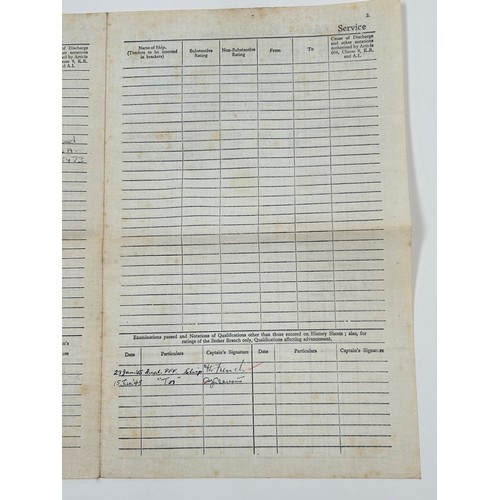 2.
Service
Name of Ship, (Tenders to be inserted in brackets)
Substantive Rating
Non-Substantive Rating
From
To
Cause of Discharge and other notations authorised by Article 606, Clause 9, K.R. and A.I.
of Discharge
other notations
by Article
9, K.R.
A.I.
Examinations passed and Notations of Qualifications other than those entered on History Sheets ; also, for
ratings of the Seaman Branch only, Qualifications affecting advancement.
Date Particulars Captain's Signature Date Particulars Captain's Signature
"Tn"